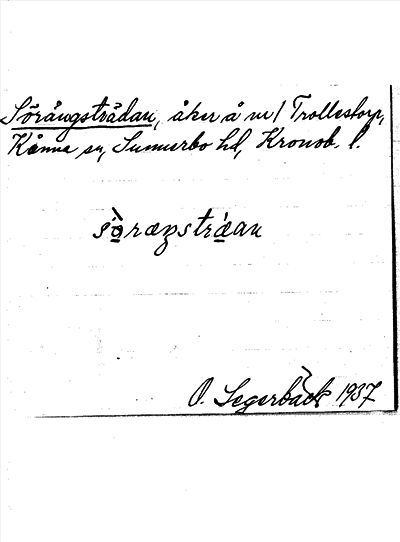 Sörängsträdan, åker å nr 1 Trollestorp,
Kånna sn, Sunnerbo hd, Kronob. l.
sò̱raŋstrá̱dan
O. Segerbäck 1937